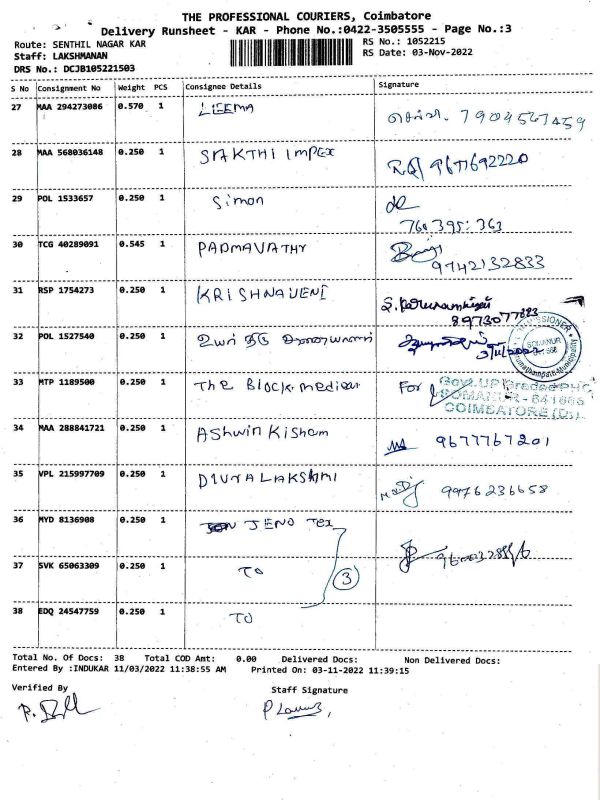 THE PROFESSIONAL COURIERS, Coimbatore
Delivery Runsheet - KAR - Phone No.:0422-3505555 - Page No.:3
Route: SENTHIL NAGAR KAR
RS No.: 1052215
Staff: LAKSHMANAN
RS Date: 03-Nov-2022
DRS No.: DCJB105221503
S No Consignment No Weight PCS Consignee Details Signature
27 MAA 294273086 0.570 1 LEEMA
28 MAA 568036148 0.250 1 SAKTHI IMPEX 9677692220
29 POL 1533657 0.250 1 Simon
30 TCG 40289091 0.545 1 PADMAVATHY
9742132833
31 RSP 1754273 0.250 1 KRISHNAVENI
32 POL 1527540 0.250 1
33 MTP 1189500 0.250 1 The Block medical For
Govt. UPGraded PHC
SOMANUR - 641668
COIMBATORE (Dt).
34 MAA 288841721 0.250 1 Ashwin Kisham 9677767201
35 VPL 215997709 0.250 1 DIVYALAKSHMI 9976236658
36 MYD 8136908 0.250 1 JENO Tex
37 SVK 65063309 0.250 1 TO 3
38 EDQ 24547759 0.250 1 TO
Total No. Of Docs: 38 Total COD Amt: 0.00 Delivered Docs: Non Delivered Docs:
Entered By :INDUKAR 11/03/2022 11:38:55 AM Printed On: 03-11-2022 11:39:15
Verified By Staff Signature